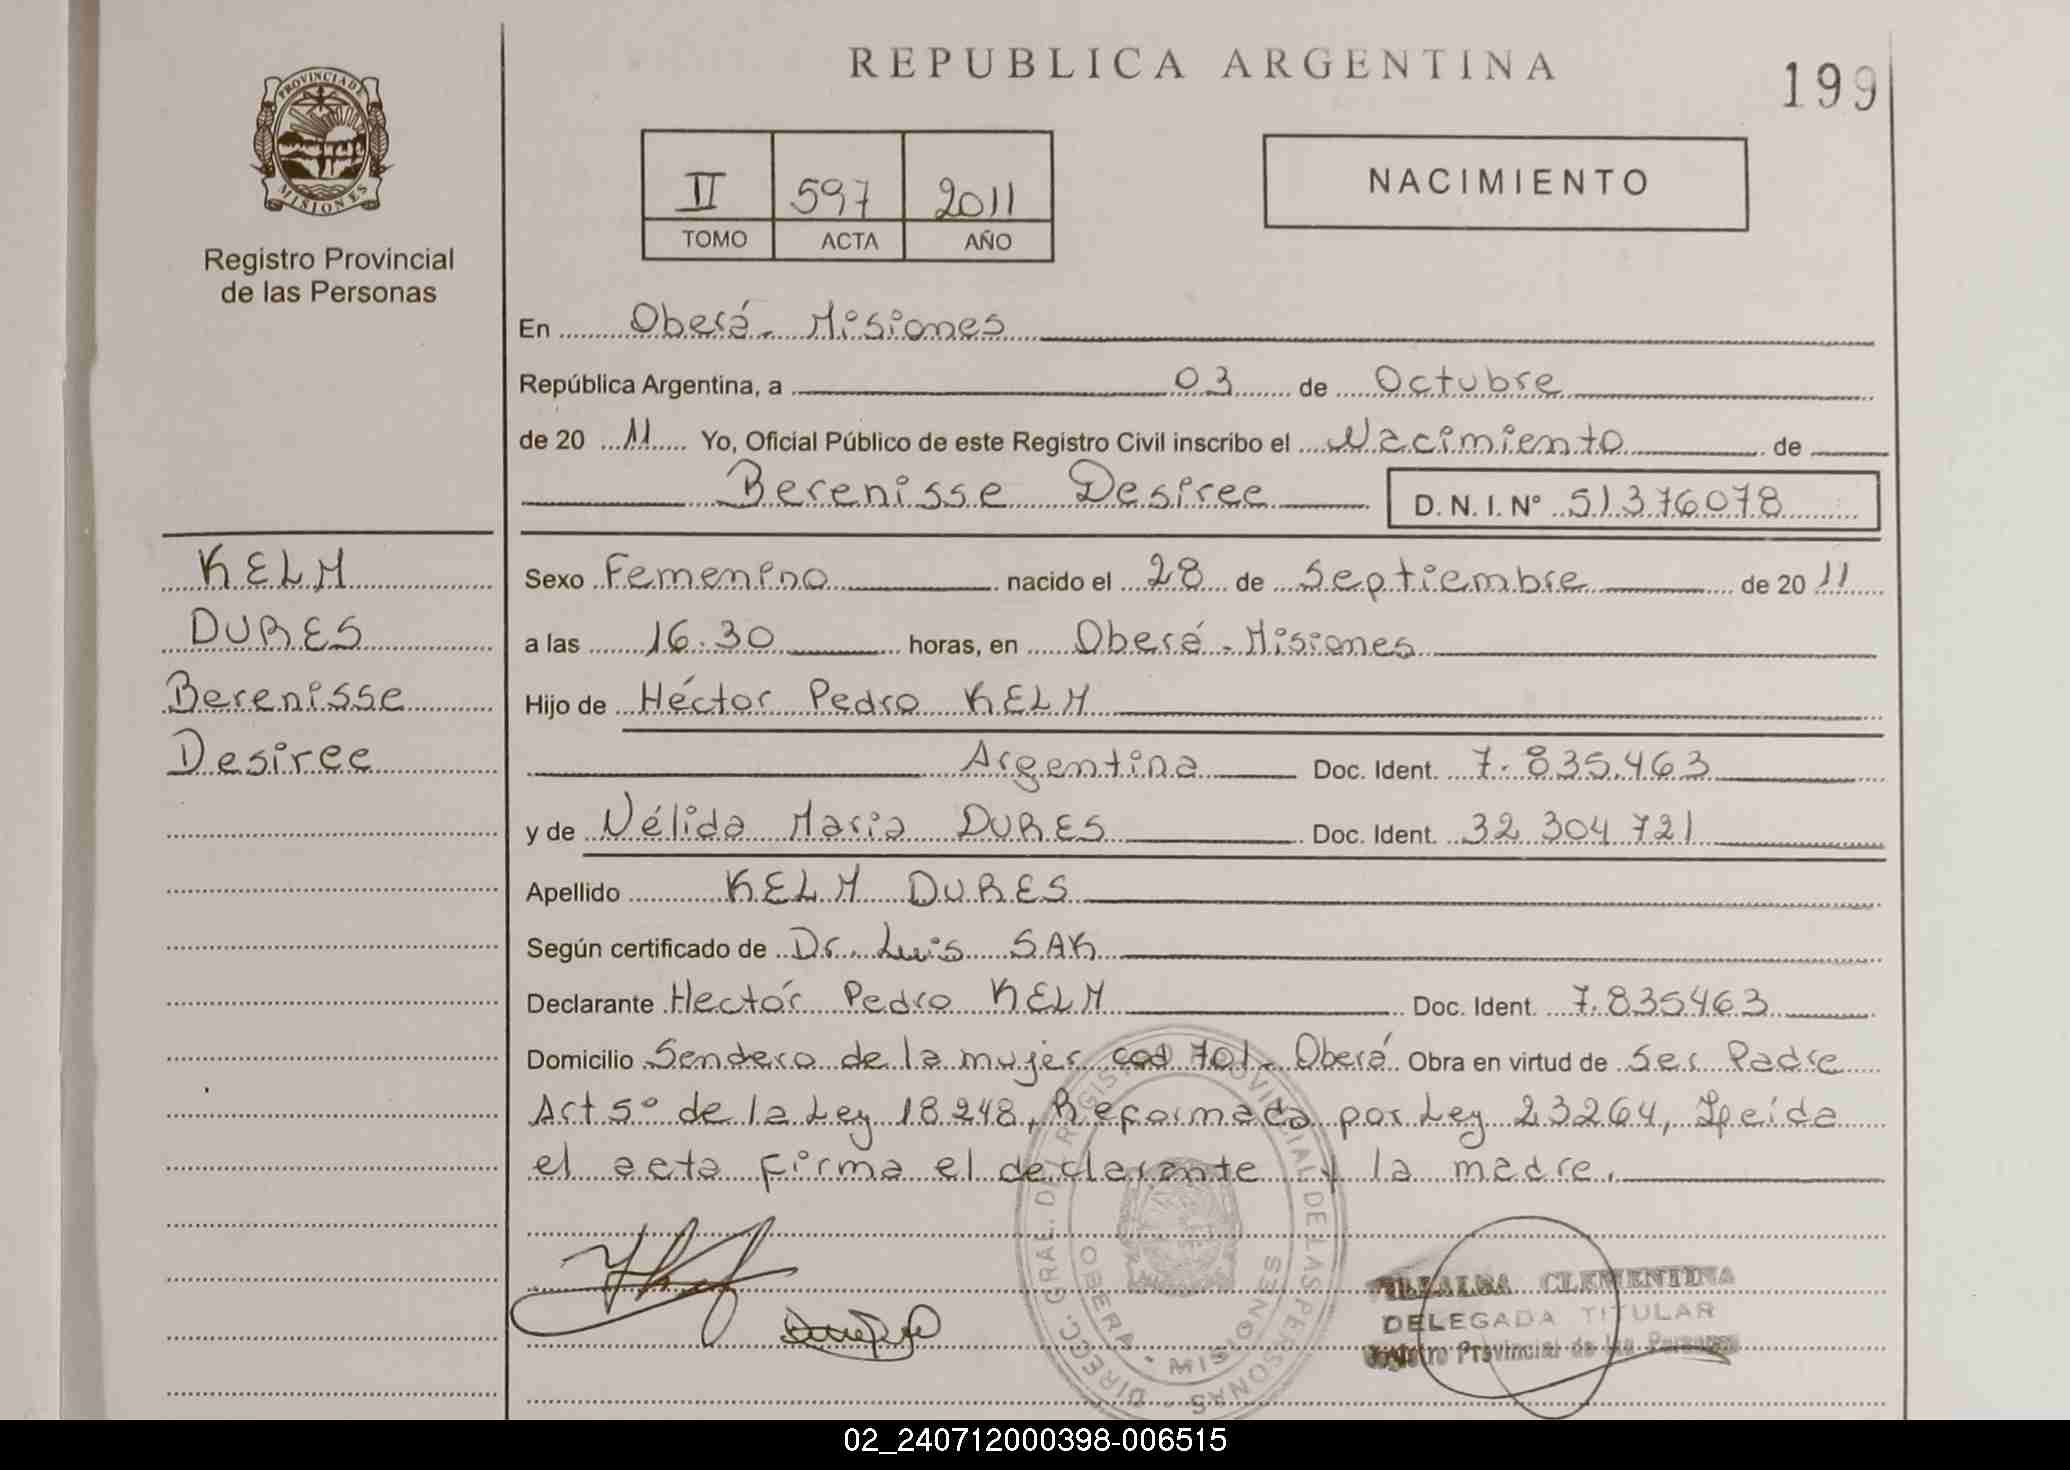 REPUBLICA ARGENTINA
199
PROVINCIA DE MISIONES
Registro Provincial
de las Personas
II 597 2011
TOMO ACTA AÑO
NACIMIENTO
En Oberá - Misiones
República Argentina, a 03 de Octubre
de 2011 Yo, Oficial Público de este Registro Civil inscribo el Nacimiento de
Berenisse Desiree D.N.I. Nº 51376078
KELM
DURES
Berenisse
Desiree
Sexo Femenino nacido el 28 de Septiembre de 2011
a las 16.30 horas, en Oberá - Misiones
Hijo de Héctor Pedro KELM
Argentina Doc. Ident. 7.835.463
y de Nélida Maria DURES Doc. Ident. 32 304 721
Apellido KELM DURES
Según certificado de Dr. Luis SAK
Declarante Hectór Pedro KELM Doc. Ident. 7.835463
Domicilio Sendero de la mujer cod 701 - Oberá Obra en virtud de Ser Padre
Art 5º de la Ley 18248, Reformada por Ley 23264, Leída
el acta firma el declarante y la madre.
DIRECC. GRAL. DEL REGISTRO PROVINCIAL DE LAS PERSONAS
OBERA - MISIONES
CLEMENTINA
DELEGADA TITULAR
Registro Provincial de las Personas
02_240712000398-006515